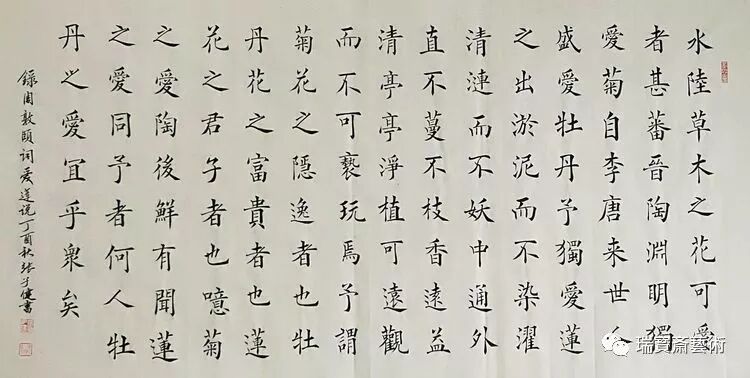 水陸草木之花可愛
者甚蕃晉陶淵明獨
愛菊自李唐来世人
盛愛牡丹予獨愛蓮
之出淤泥而不染濯
清漣而不妖中通外
直不蔓不枝香遠益
清亭亭淨植可遠觀
而不可褻玩焉予謂
菊花之隐逸者也牡
丹花之富貴者也蓮
花之君子者也噫菊
之愛陶後鮮有聞蓮
之愛同予者何人牡
丹之愛宜乎衆矣
錄周敦頤詞爱莲说丁酉秋张子健書
瑞寳斎藝術